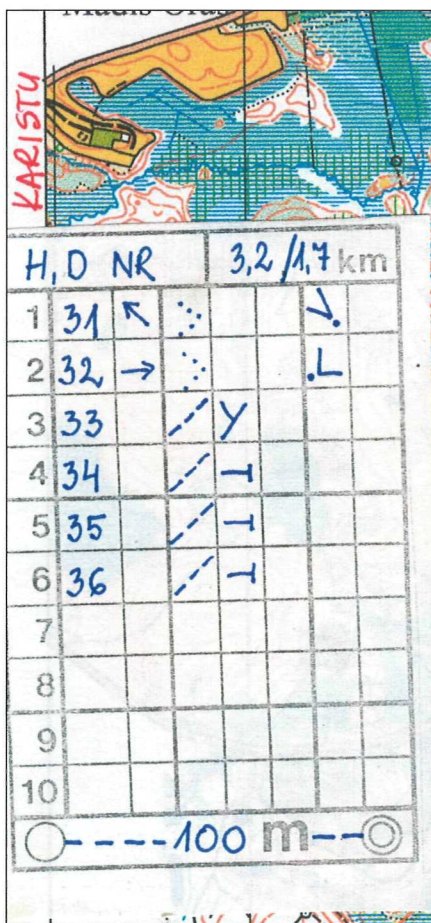 KARISTU
H, D NR 3,2/1,7 km
1 31
2 32
3 33
4 34
5 35
6 36
7
8
9
10
100 m